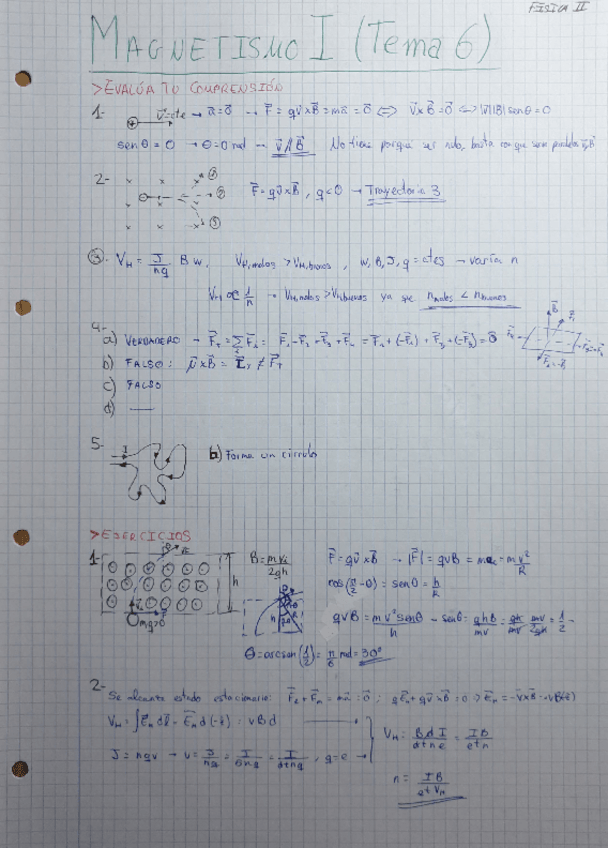 FÍSICA II
MAGNETISMO I (Tema 6)
>EVALÚA TU COMPRENSIÓN
1- v⃗=cte → a⃗=0⃗ → F⃗ = qv⃗×B⃗ = ma⃗ = 0⃗ ⇔ v⃗×B⃗ = 0⃗ ⇔ |v⃗||B⃗| senθ = 0
senθ = 0 → θ = 0 rad → v⃗ // B⃗ No tiene porqué ser nulo, basta con que sean paralelos v⃗, B⃗
2- F⃗ = qv⃗×B⃗, q<0 → Trayectoria 3
3. V_H = J/nq B w, V_H,malos > V_H,buenos, w, B, J, q = ctes → varía n
V_H ∝ 1/n → V_H,malos > V_H,buenos ya que n_malos < n_buenos
4-
a) VERDADERO → F⃗_T = Σ F⃗_i =
b) FALSO: μ⃗×B⃗ =
c) FALSO
d) —
5- I b) Forma un círculo
>EJERCICIOS
1- B = mv/2qh F⃗ = qv⃗×B⃗ → |F⃗| = qvB = ma_c = m v²/R
h mg>0 cos(π/2 - θ) = senθ = h/R
qvB = mv² senθ/h → senθ = qhB/mv = qh/mv mv/2qh = 1/2 →
θ = arcsen(1/2) = π/6 rad = 30°
2- Se alcanta estado estacionario:
V_H = = vBd
J = nqv → v = J/nq = = I/dtnq, q=e →
V_H = BdI/dtne = IB/etn
n = IB/etV_H